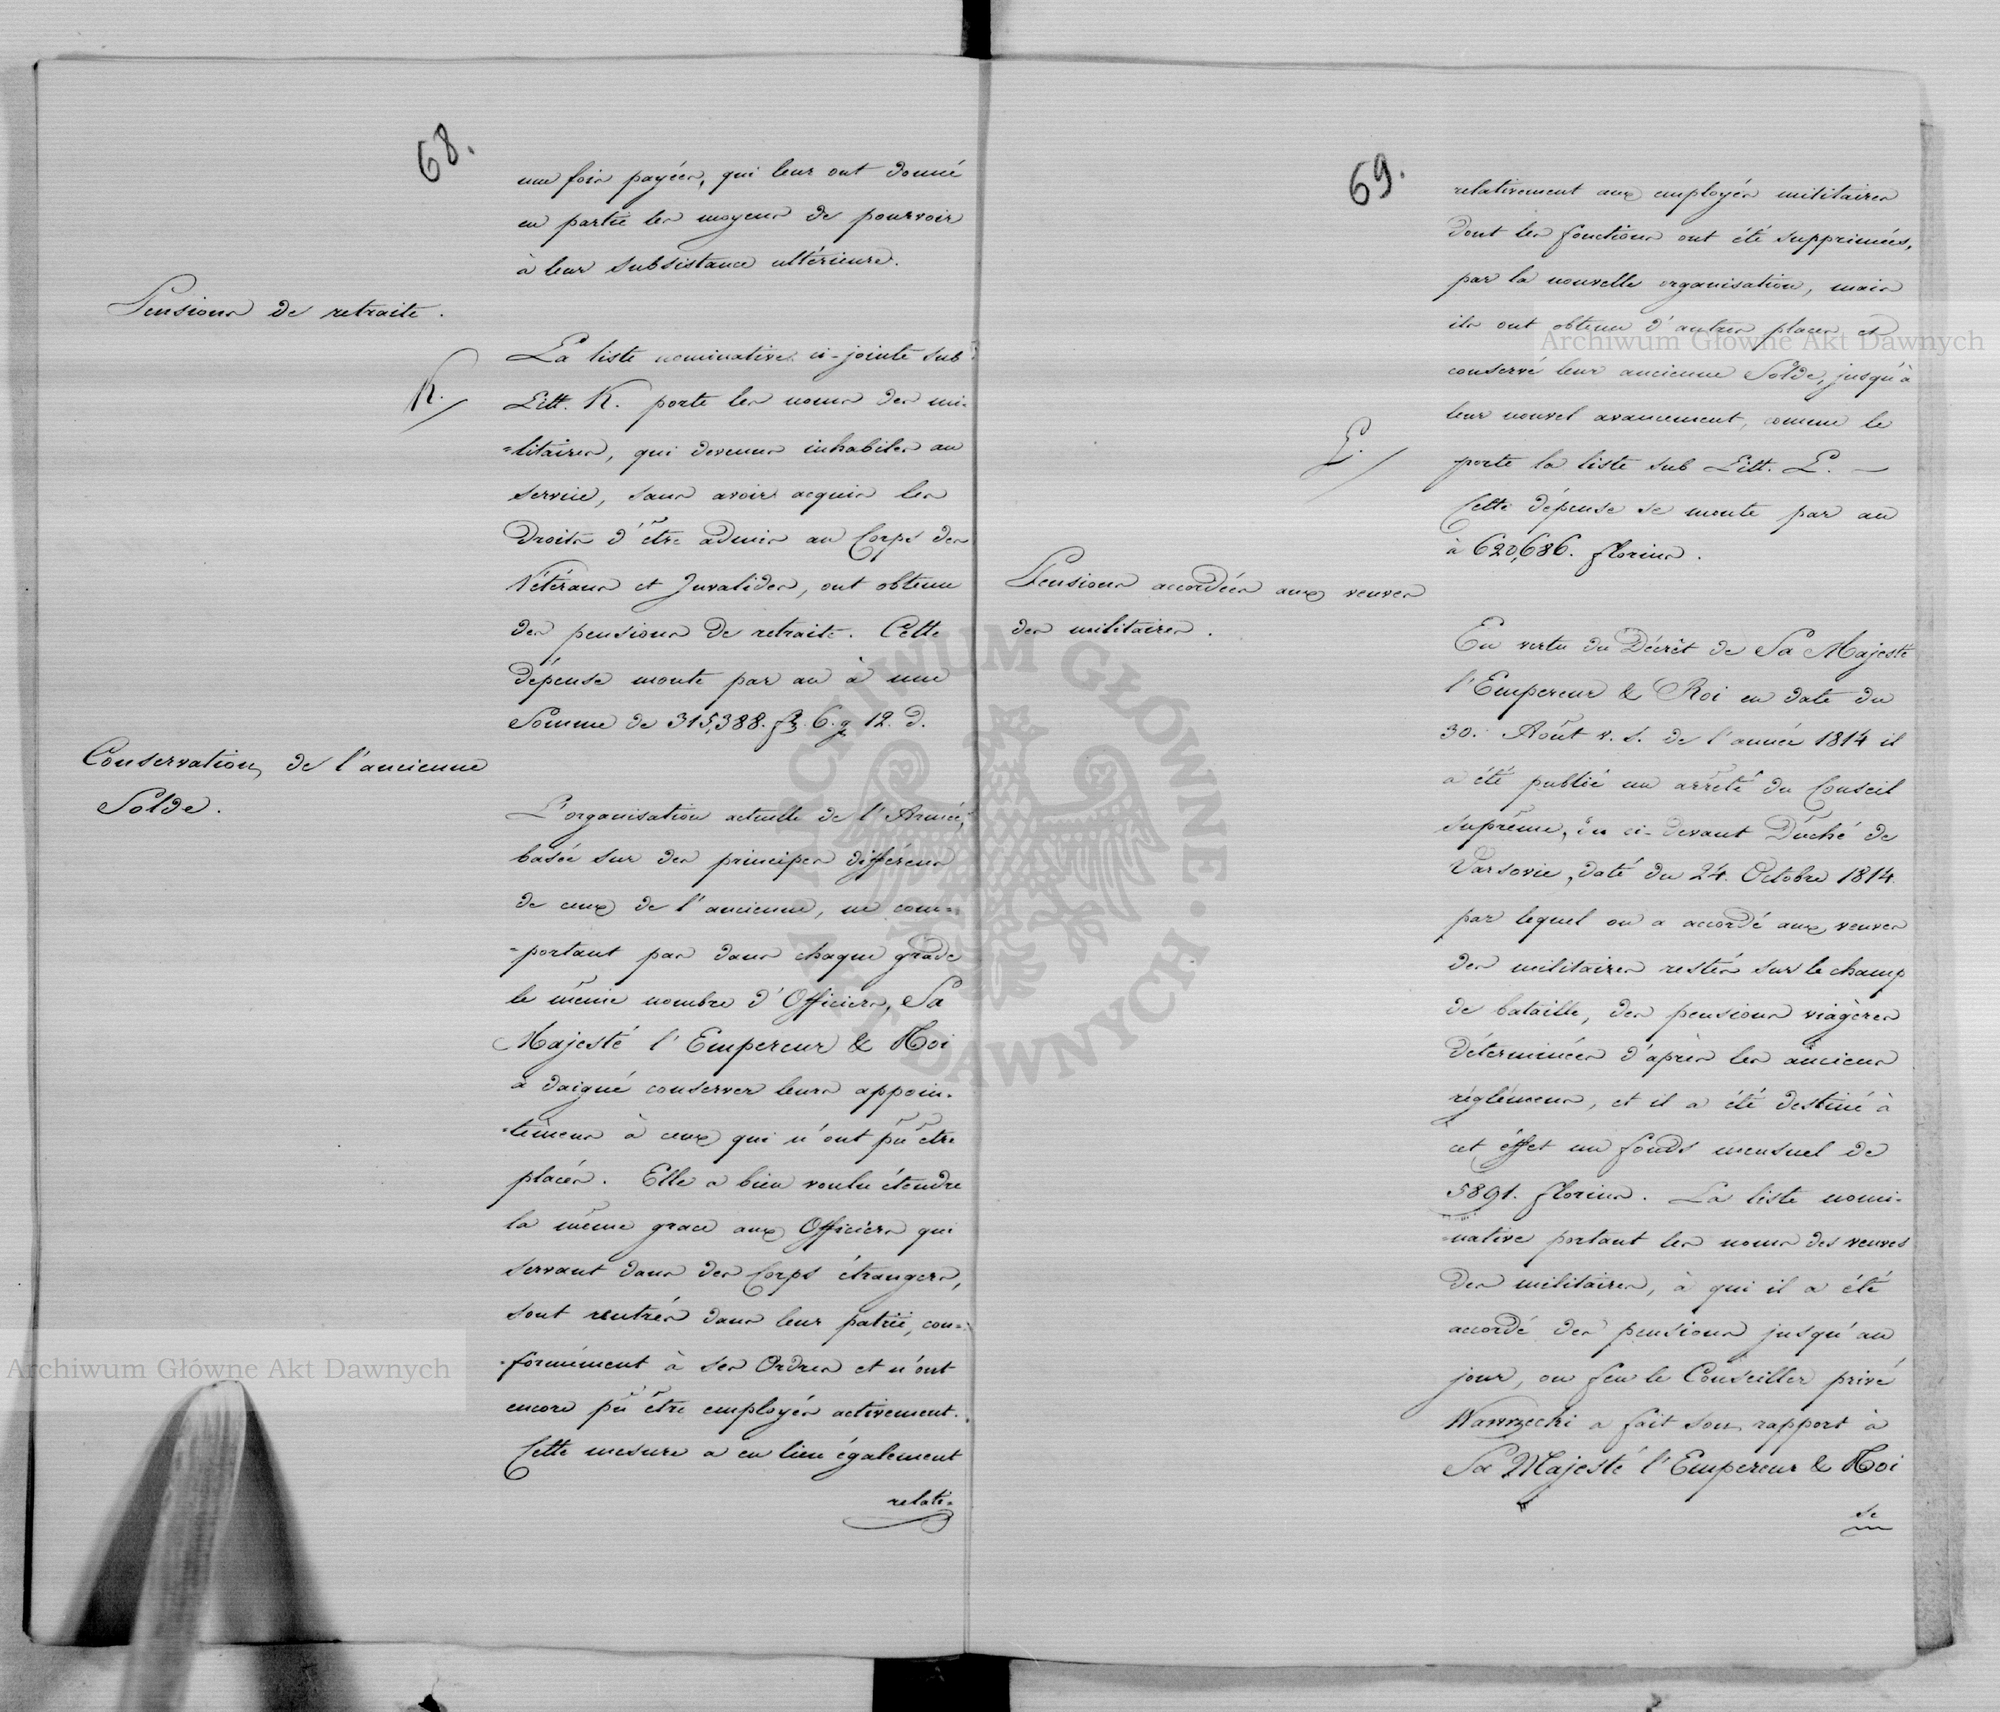 68.
une fois payées, qui leur ont donné
en partie les moyens de pourvoir
à leur subsistance ultérieure.
Pensions de retraite.
La liste nominative ci-jointe sub
K.
Litt. K. porte les noms des mi-
-litaires, qui devenus inhabiles au
service, sans avoir acquis les
Droits d'être admis au Corps des
Vétérans et Invalides, ont obtenu
des pensions de retraite. Cette
dépense monte par an à une
Somme de 315,388. fl. 6. g 12. d.
Conservation de l'ancienne
Solde.
L'organisation actuelle de l'Armée,
basée sur des principes différens
de ceux de l'ancienne, ne com-
-portant pas dans chaque grade
le même nombre d'Officiers, Sa
Majesté l'Empereur & Roi
a daigné conserver leurs appoin-
-temens à ceux qui n'ont pû être
placés. Elle a bien voulu étendre
la même grace aux Officiers qui
servant dans des Corps étrangers,
sont rentrés dans leur patrie, con-
-formément à ses Ordres et n'ont
encore pû être employés activement.
Cette mesure a eu lieu également
relati-
69.
relativement aux employés militaires
dont les fonctions ont été supprimées,
par la nouvelle organisation, mais
ils ont obtenu d'autres places et
conservé leur ancienne Solde, jusqu'à
leur nouvel avancement, comme le
L.
porte la liste sub Litt. L. —
Cette dépense se monte par an
à 620,686. florins.
Pensions accordées aux veuves
des militaires.
En vertu du Décrêt de Sa Majesté
l'Empereur & Roi en date du
30. Août v. s. de l'année 1814 il
a été publié un arrêté du Conseil
suprême, du ci-devant Duché de
Varsovie, daté du 24. Octobre 1814
par lequel on a accordé aux veuves
des militaires restés sur le champ
de bataille, des pensions viagères
déterminées d'après les anciens
réglémens, et il a été destiné à
cet éffet un fonds mensuel de
5891. florins. La liste nomi-
-native portant les noms des veuves
des militaires, à qui il a été
accordé des pensions jusqu'au
jour, ou feu le Conseiller privé
Wawrzecki a fait son rapport à
Sa Majesté l'Empereur & Roi
se
Archiwum Główne Akt Dawnych
Archiwum Główne Akt Dawnych
ARCHIWUM GŁÓWNE AKT DAWNYCH